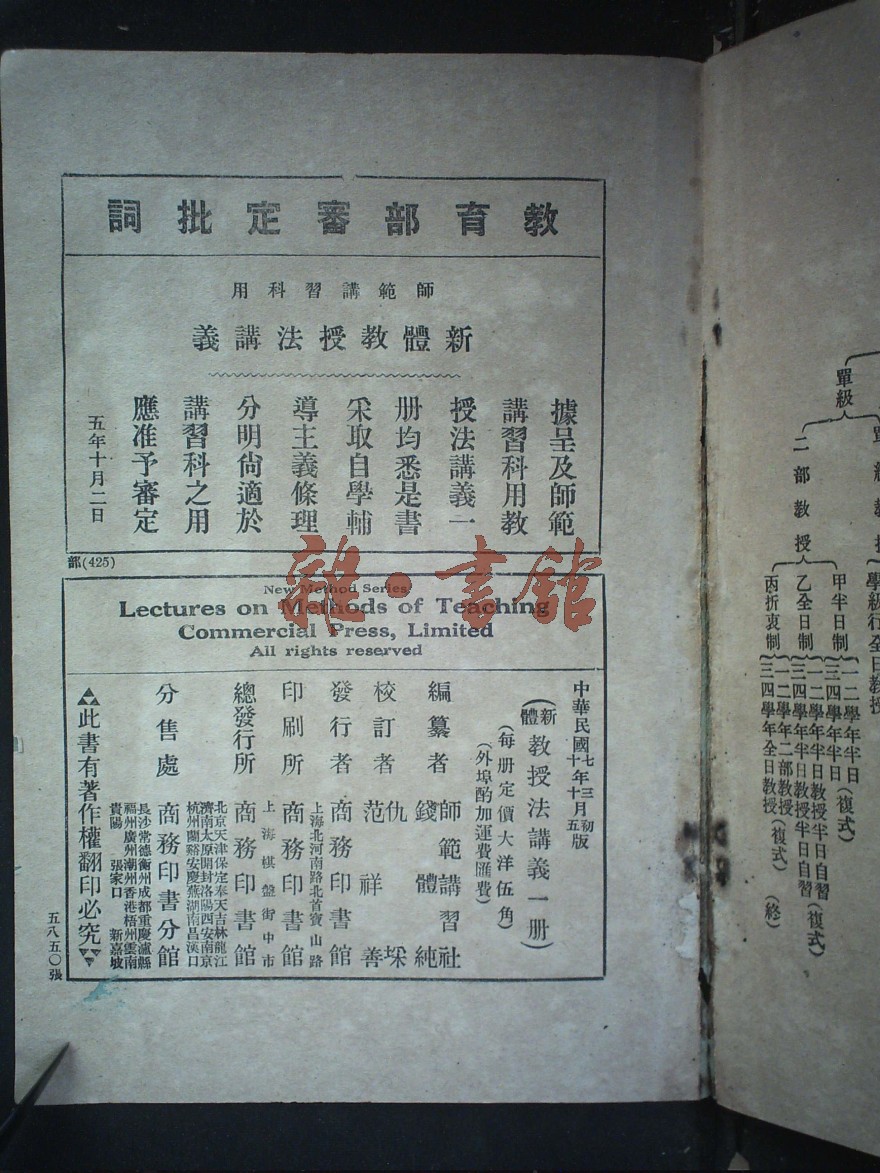 教育部審定批詞
師範講習科用
新體教授法講義
據呈及師範
講習科用教
授法講義一
册均悉是書
采取自學輔
導主義條理
分明尙適於
講習科之用
應准予審定
五年十月二日
部(425)
New Method Series
Lectures on Methods of Teaching
Commercial Press, Limited
All rights reserved
中華民國七年三月初版
十年十月五版
(新體教授法講義一册)
(每册定價大洋伍角)
(外埠酌加運費匯費)
編纂者 師範講習社
錢體純
校訂者 仇埰
范祥善
發行者 商務印書館
上海北河南路北首寶山路
印刷所 商務印書館
上海棋盤街中市
總發行所 商務印書館
北京天津保定奉天吉林龍江
濟南太原開封洛陽西安南京
杭州蘭谿安慶蕪湖南昌漢口
分售處 商務印書分館
長沙常德衡州成都重慶瀘縣
福州廣州潮州香港梧州雲南
貴陽 張家口 新嘉坡
此書有著作權翻印必究
五八五〇張
單級
二部教授
甲半日制
一二學年半日
三四學年半日
(複式)
乙全日制
一二學年半日教授半日自習
三四學年半日教授半日自習
(複式)
丙折衷制
一二學年二部教授
三四學年全日教授
(複式)
(終)
學級行全日教授
雜·書館